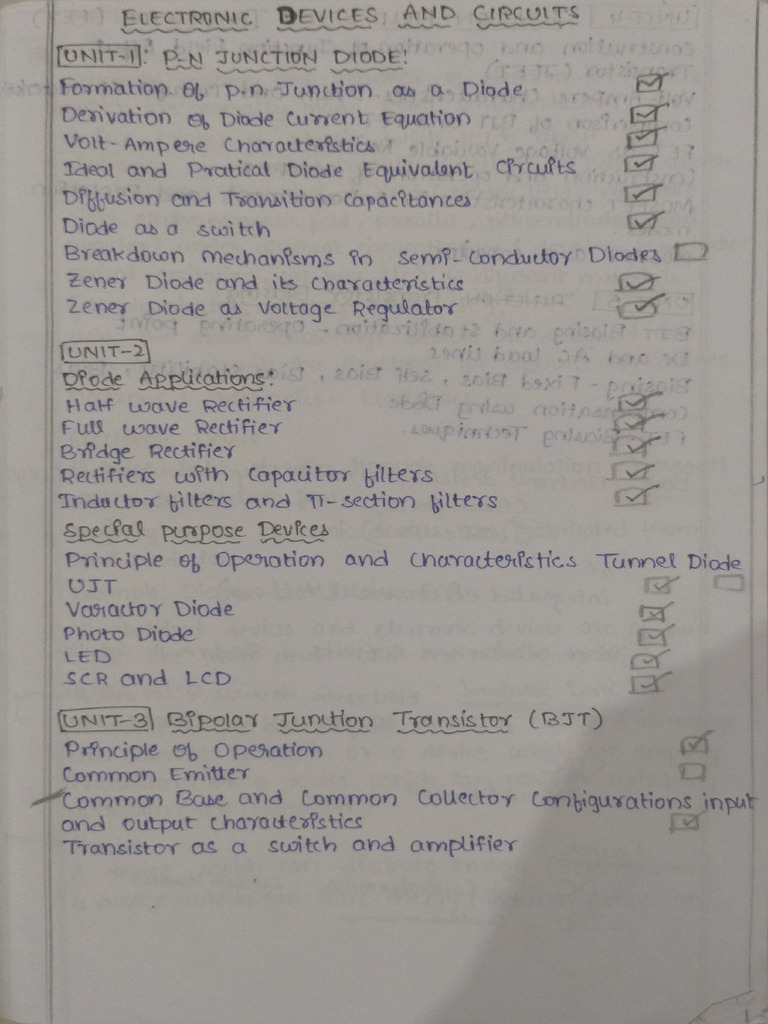 ELECTRONIC DEVICES AND CIRCUITS
UNIT-1: P-N JUNCTION DIODE:
Formation of p-n Junction as a Diode
Derivation of Diode Current Equation
Volt-Ampere Characteristics
Ideal and Pratical Diode Equivalent Circuits
Diffusion and Transition Capacitances
Diode as a switch
Breakdown mechanisms in semi-conductor Diodes
Zener Diode and its Characteristics
Zener Diode as Voltage Regulator
UNIT-2
Diode Applications:
Half wave Rectifier
Full wave Rectifier
Bridge Rectifier
Rectifiers with Capacitor filters
Inductor filters and π-section filters
Special purpose Devices
Principle of Operation and Characteristics Tunnel Diode
UJT
Varactor Diode
Photo Diode
LED
SCR and LCD
UNIT-3 Bipolar Junction Transistor (BJT)
Principle of Operation
Common Emitter
Common Base and Common Collector Configurations input
and output characteristics
Transistor as a switch and amplifier